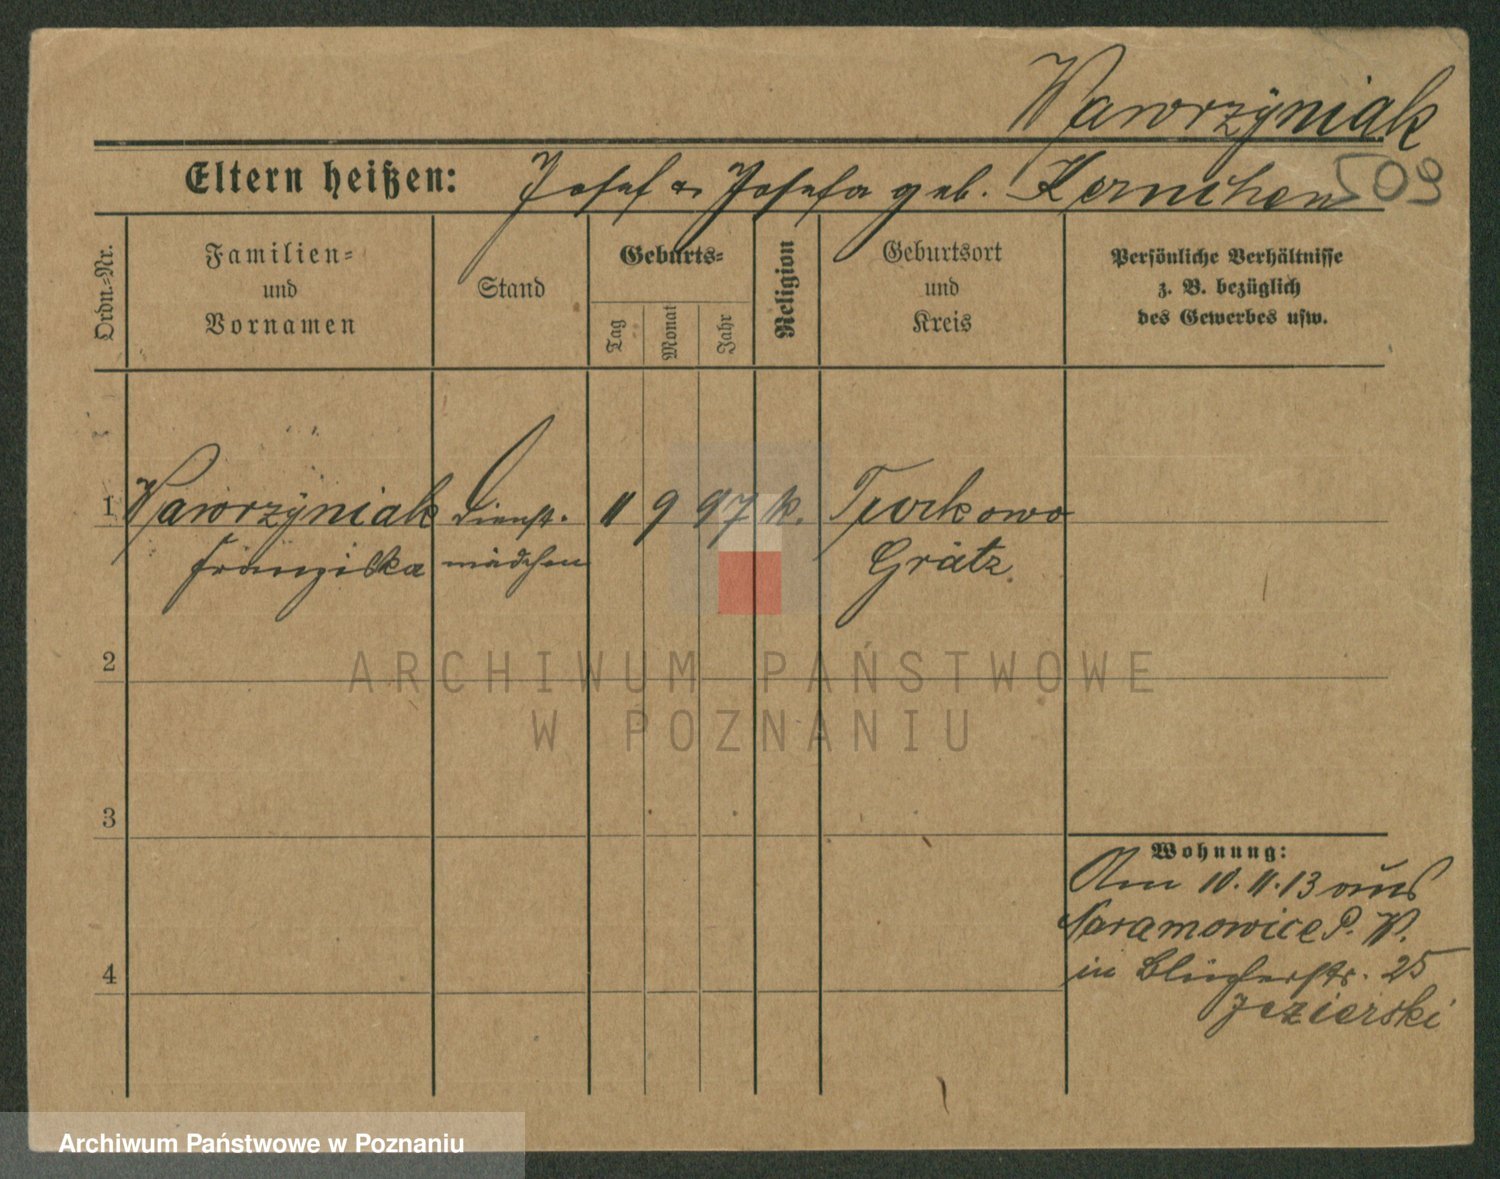 Wawrzÿniak
Eltern heißen: Josef u. Josefa geb. Kernchen
509
Ordn.-Nr.
Familien-
und
Vornamen
Stand
Geburts-
Tag
Monat
Jahr
Religion
Geburtsort
und
Kreis
Persönliche Verhältnisse
z. B. bezüglich
des Gewerbes usw.
1 Wawrzÿniak Dienst- 11 9 97 k. Turkowo
Franziska mädchen Grätz
2
ARCHIWUM PAŃSTWOWE
W POZNANIU
3
Wohnung:
Am 10.11.13 aus
Naramowice P. W.
4 in Blücherstr. 25
Jezierski
Archiwum Państwowe w Poznaniu